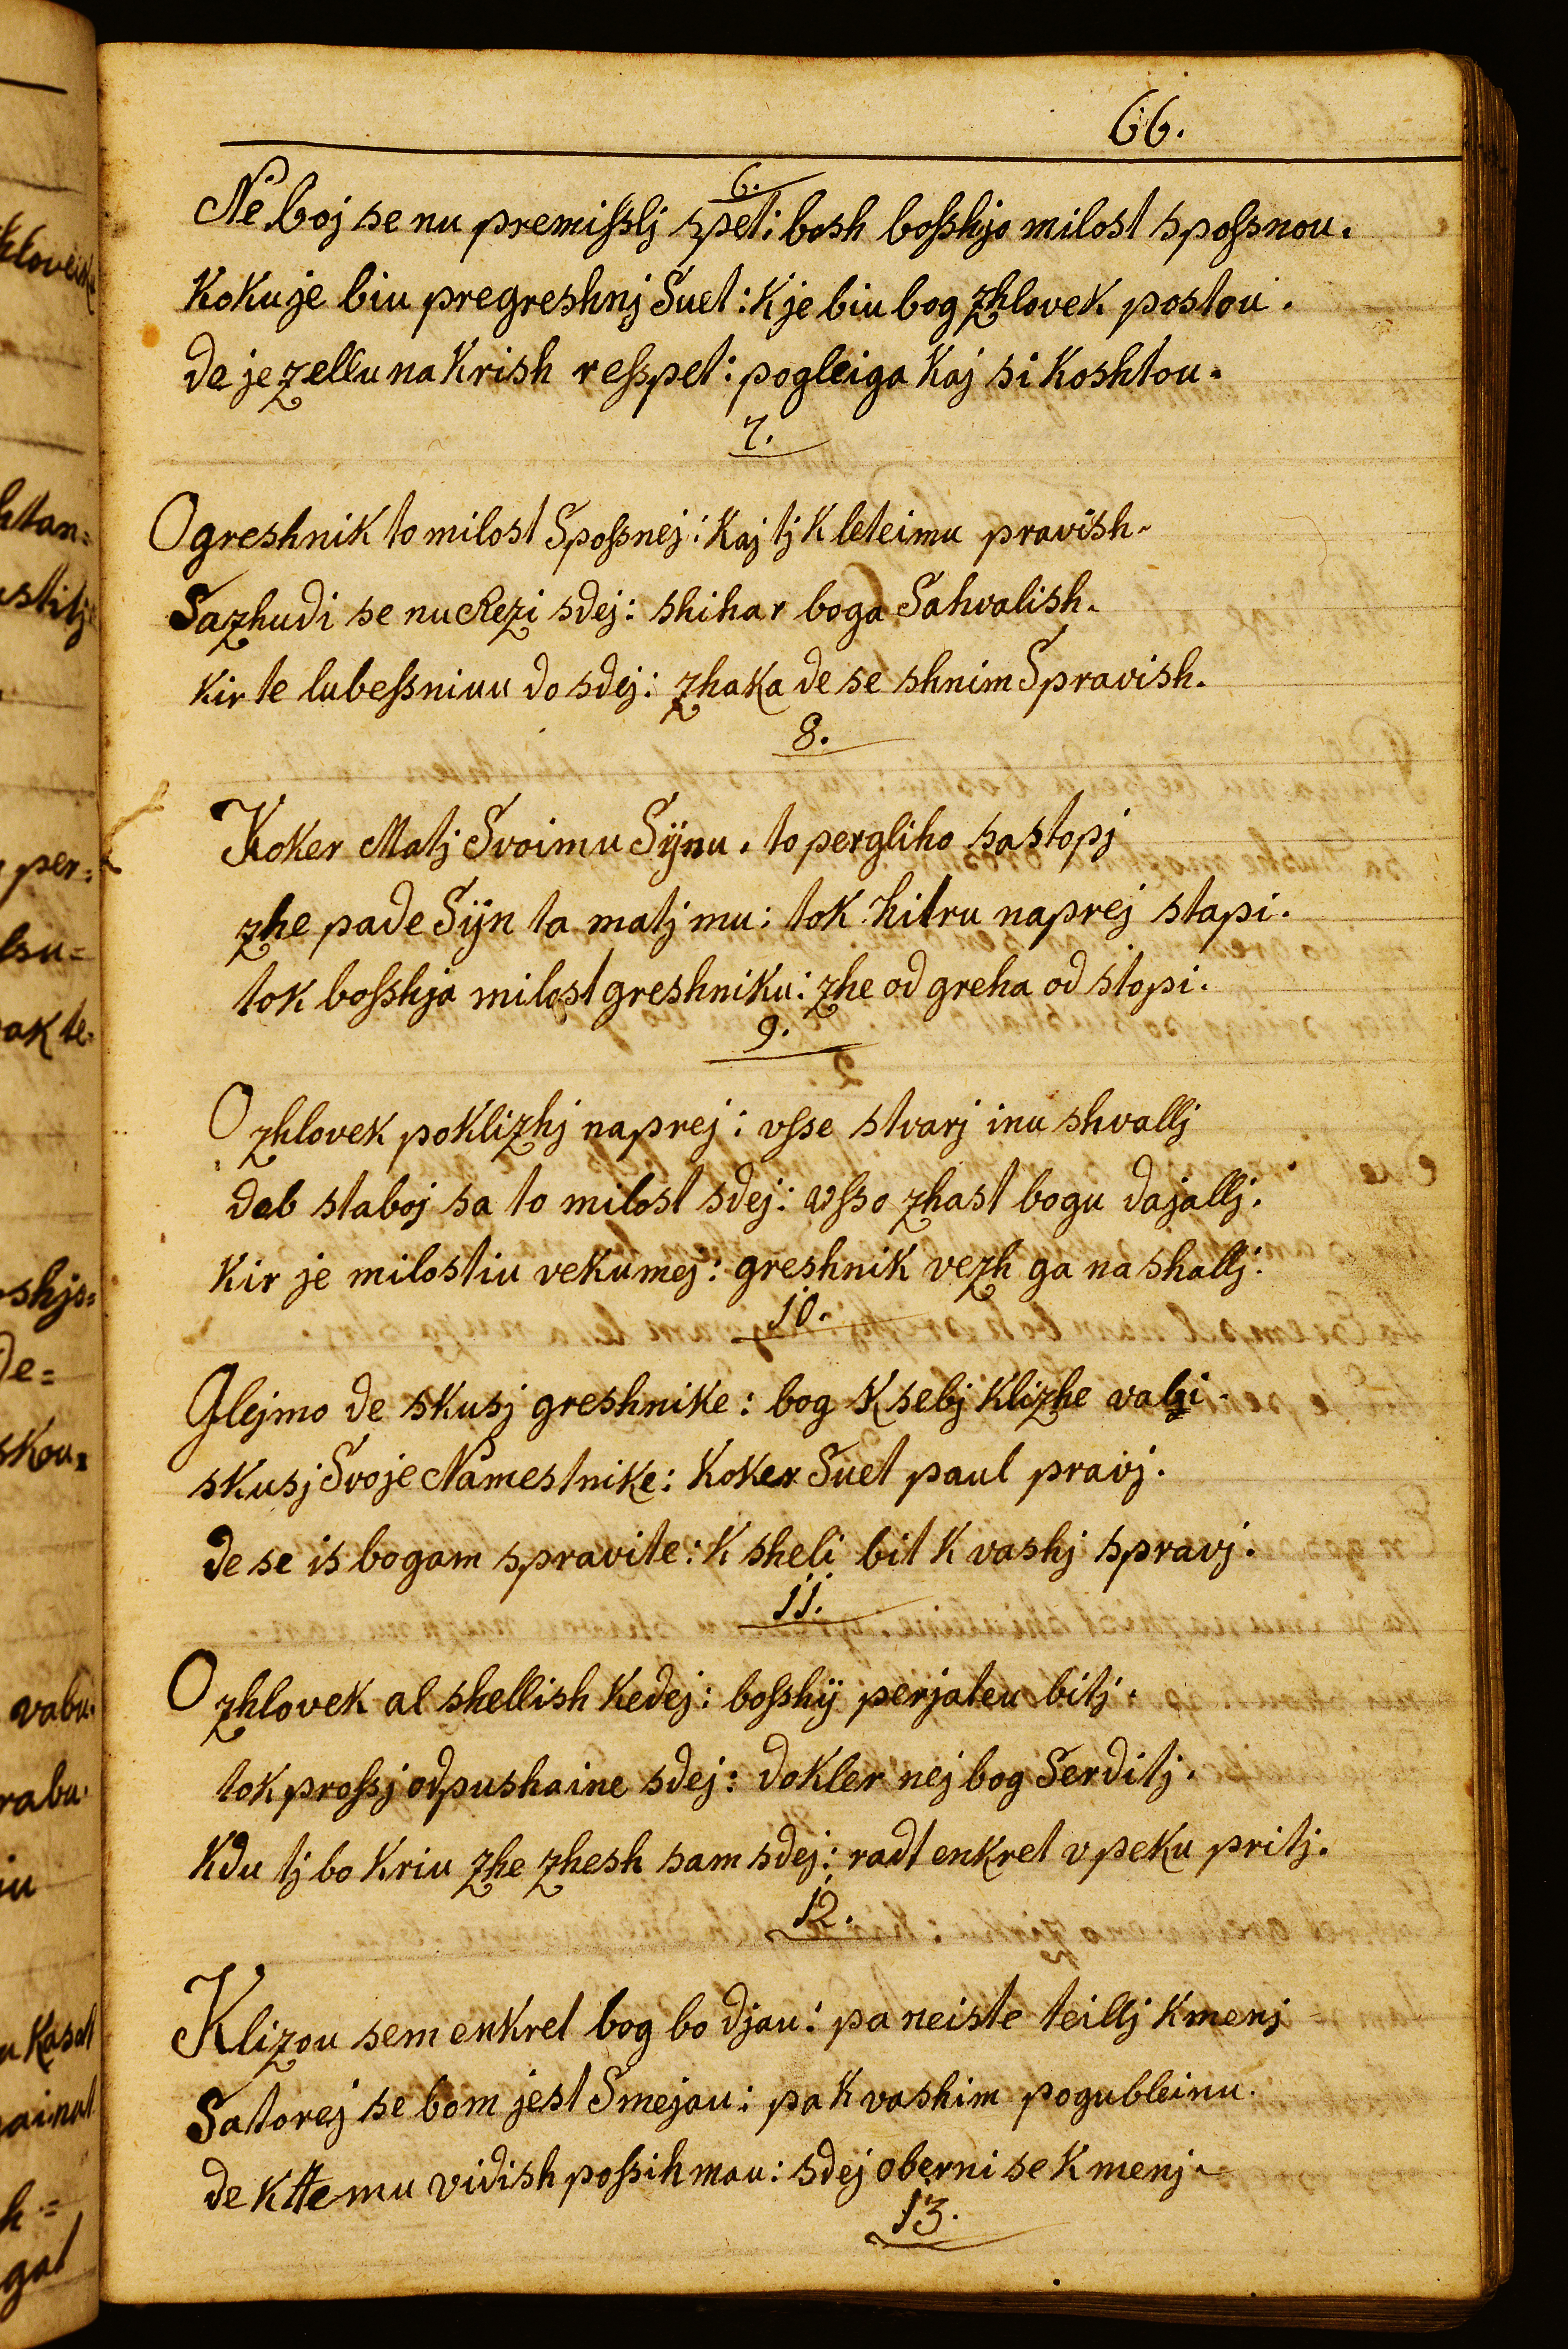 66.
6.
Ne boj se nu premisslj spet: bosh bosshjo milost spossnou.
Kokuje biu pregreshnj Suet: Kje biu bog zhlovek postou.
de je zellu na Krish resspet: pogleiga Kaj si Koshtou.
7.
O greshnik to milost Spossnej: Kaj tj K leteimu pravish.
Sazhudi se nu Rezi sdej: shihar boga Sahvalish.
Kir te lubessniuu do sdej: zhaka de se shnim Spravish.
8.
Koker Matj Svoimu Sÿnu. to pergliho sastopj
zhe pade Sÿn ta matj mu: tok hitru naprej stapi.
tok bosshja milost greshniku: zhe od greha od stopi.
9.
O zhlovek poklizhj naprej: vsse stvarj inu shvallj
dab staboj sa to milost sdej: vsso zhast bogu dajallj.
Kir je milostiu vekumej: greshnik vezh ga na shallj.
10.
Glejmo de skusj greshnike: bog K sebj Klizhe vabi.
skusj Svoje Namestnike: Koker Suet paul pravj.
de se is bogam spravite: K sheli bit K vashj spravj.
11.
O zhlovek al shellish Kedej: bosshÿ perjateu bitj.
tok prossj odpushaine sdej: dokler nej bog Serditj.
Kdu tj bo Kriu zhe zhesh sam sdej: radt enkret v peku pritj.
12.
Klizou sem enkret bog bo djau: pa neiste teillj K menj
Satorej se bom jest Smejau: pa K vashim pogubleinu.
de K ttemu vidish possih mau: sdej oberni se K menj.
13.